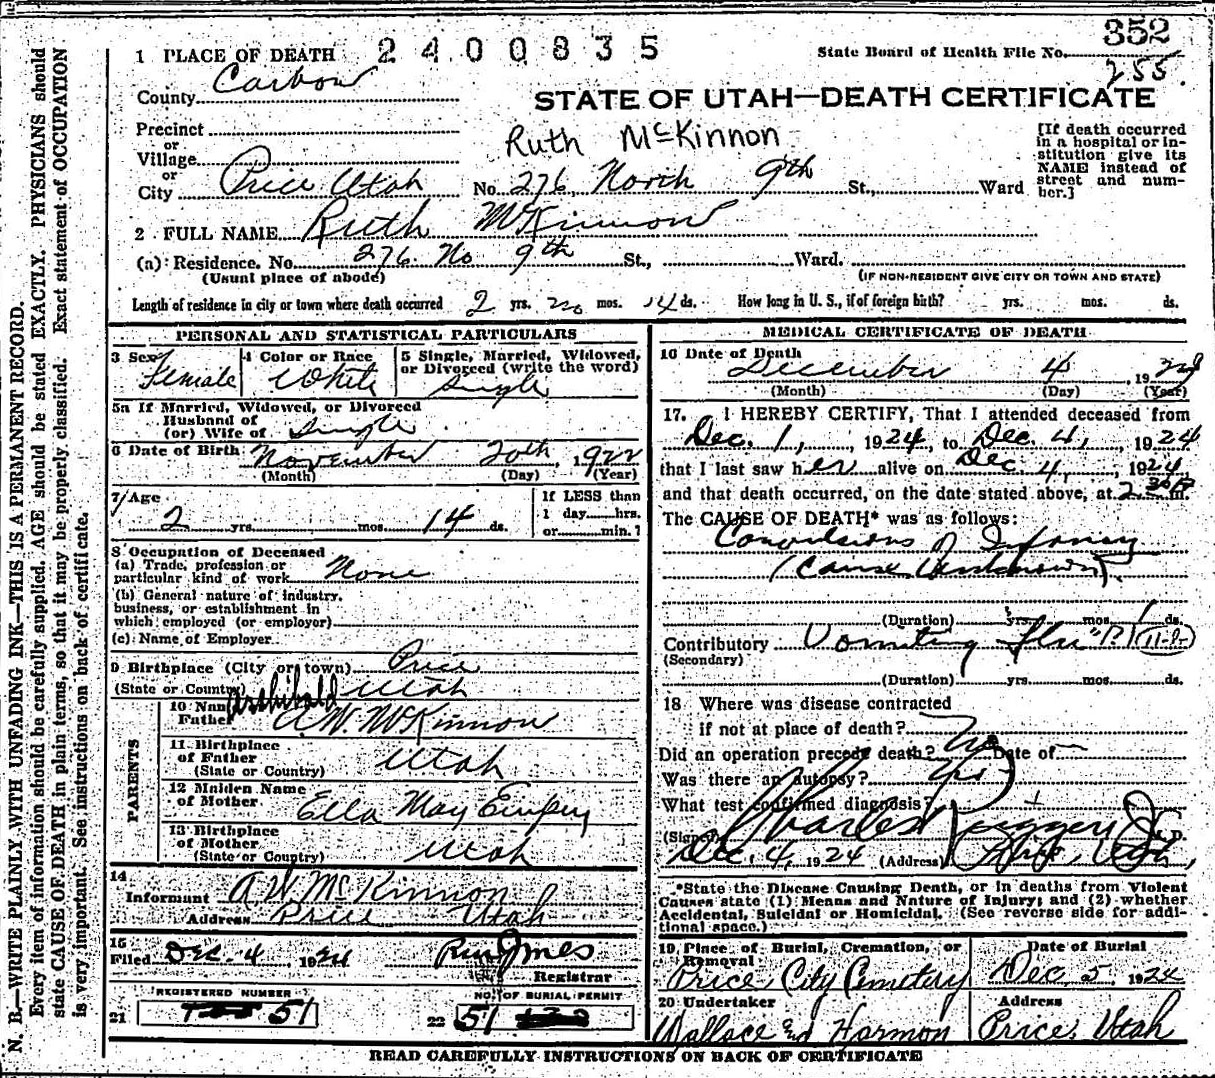 352
1 PLACE OF DEATH 2400835 State Board of Health File No. 255
County Carbon
STATE OF UTAH—DEATH CERTIFICATE
Precinct
or
Village
or
City Price Utah
Ruth McKinnon
No. 276 North 9th St., Ward
[If death occurred in a hospital or institution give its NAME instead of street and number.]
2 FULL NAME Ruth McKinnon
(a) Residence. No. 276 No 9th St., Ward.
(Usual place of abode) (IF NON-RESIDENT GIVE CITY OR TOWN AND STATE)
Length of residence in city or town where death occurred 2 yrs. no mos. 14 ds. How long in U. S., if of foreign birth? yrs. mos. ds.
PERSONAL AND STATISTICAL PARTICULARS
3 Sex Female
4 Color or Race White
5 Single, Married, Widowed, or Divorced (write the word) Single
5a If Married, Widowed, or Divorced
Husband of
(or) Wife of Single
6 Date of Birth November 20th, 1922
(Month) (Day) (Year)
7 Age 2 yrs. mos. 14 ds.
If LESS than
1 day hrs.
or min.?
8 Occupation of Deceased
(a) Trade, profession or
particular kind of work None
(b) General nature of industry,
business, or establishment in
which employed (or employer)
(c) Name of Employer
9 Birthplace (City or town) Price
(State or Country) Utah
PARENTS
Archibald
10 Name of
Father A.W. McKinnon
11 Birthplace
of Father
(State or Country) Utah
12 Maiden Name
of Mother Ella May Empey
13 Birthplace
of Mother
(State or Country) Utah
14
Informant A W McKinnon
Address Price Utah
15
Filed Dec. 4, 1924
Registrar
REGISTERED NUMBER
21 51
NO. OF BURIAL PERMIT
22 51
MEDICAL CERTIFICATE OF DEATH
16 Date of Death
December 4, 19
(Month) (Day) (Year)
17. I HEREBY CERTIFY, That I attended deceased from
Dec. 1, 1924, to Dec. 4, 1924
that I last saw her alive on Dec 4, 1924
and that death occurred, on the date stated above, at 2 30 P m.
The CAUSE OF DEATH* was as follows:
Convulsions of Infancy
(Cause Unknown).
(Duration) yrs. mos. 1 ds.
Contributory Vomiting "flu"
(Secondary)
(Duration) yrs. mos. ds.
18 Where was disease contracted
if not at place of death?
Did an operation precede death? No Date of —
Was there an autopsy?
What test confirmed diagnosis?
(Signed) Charles Ruggeri Jr M. D.
Dec. 4, 1924 (Address) Price, Utah,
*State the Disease Causing Death, or in deaths from Violent
Causes state (1) Means and Nature of Injury; and (2) whether
Accidental, Suicidal or Homicidal. (See reverse side for addi-
tional space.)
19 Place of Burial, Cremation, or
Removal
Price City Cemetery
Date of Burial
Dec 5, 1924
20 Undertaker
Wallace and Harmon
Address
Price, Utah
READ CAREFULLY INSTRUCTIONS ON BACK OF CERTIFICATE
N. B.—WRITE PLAINLY WITH UNFADING INK—THIS IS A PERMANENT RECORD.
Every item of information should be carefully supplied. AGE should be stated EXACTLY. PHYSICIANS should
state CAUSE OF DEATH in plain terms, so that it may be properly classified. Exact statement of OCCUPATION
is very important. See instructions on back of certificate.